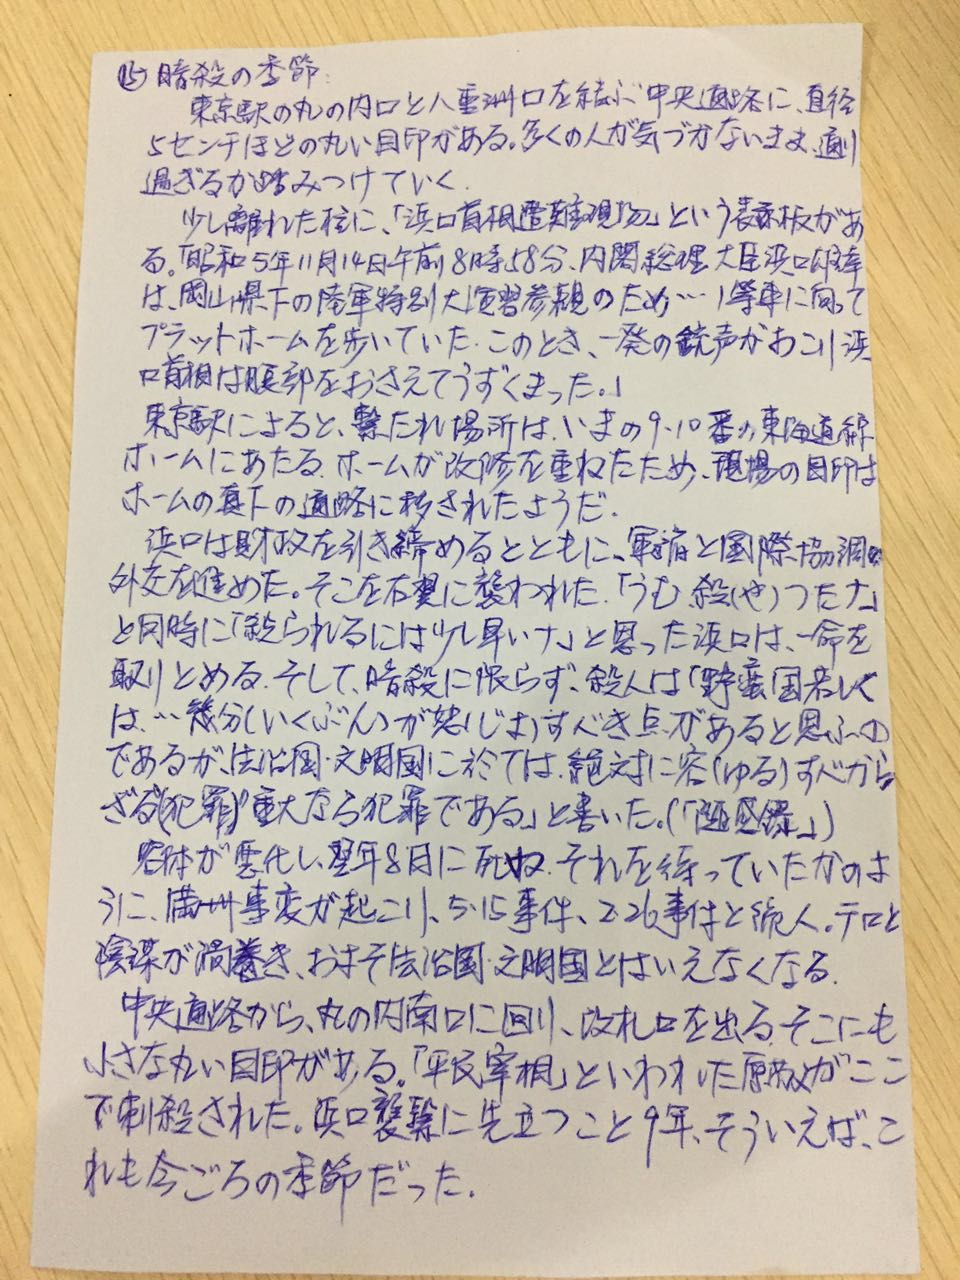 (15) 暗殺の季節:
東京駅の丸の内口と八重洲口を結ぶ中央通路に、直径
5センチほどの丸い目印がある。多くの人が気づかないまま、通り
過ぎるか踏みつけていく.
少し離れた柱に、「浜口首相遭難現場」という表示板があ
る。「昭和5年11月14日午前8時58分、内閣総理大臣浜口雄幸
は、岡山県下の陸軍特別大演習参観のため…1等車に向って
プラットホームを歩いていた. このとき、一発の銃声がおこり浜
口首相は腹部をおさえてうずくまった。」
東京駅によると、撃たれ場所は、いまの9・10番の東海道線
ホームにあたる. ホームが改修を重ねたため、現場の目印は
ホームの真下の通路に移されたようだ.
浜口は財政を引き締めるとともに、軍縮と国際協調の
外交を進めた。そこを右翼に襲われた.「うむ、殺(や)つたナ」
と同時に「殺られるには少し早いナ」と思った浜口は、一命を
取りとめる. そして、暗殺に限らず、殺人は「野蛮国若しく
は…幾分(いくぶん)か恕(じょ)すべき点があると思ふの
であるが、法治国・文明国に於ては、絶対に容(ゆる)すべから
ざる(犯罪)重大なる犯罪である」と書いた。(「随感録」)
容体が悪化し、翌年8月に死ぬ. それを待っていたかのよ
うに、満州事変が起こり、5・15事件、2・26事件と続く。テロと
陰謀が渦巻き、およそ法治国・文明国とはいえなくなる.
中央通路から、丸の内南口に回り、改札口を出る. そこにも
小さな丸い目印がある。「平民宰相」といわれた原敬がここ
で刺殺された。浜口襲撃に先立つこと9年、そういえば、こ
れも今ごろの季節だった.